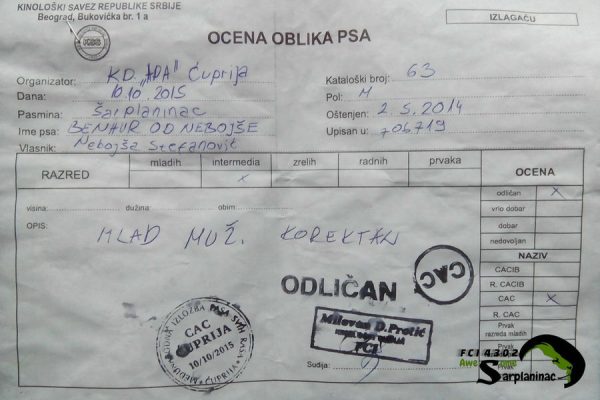 KINOLOŠKI SAVEZ REPUBLIKE SRBIJE
Beograd, Bukovička br. 1 a
IZLAGAČU
KSS
OCENA OBLIKA PSA
Organizator: KD „ADA" Ćuprija
Kataloški broj: 63
Dana: 10.10.2015
Pol: M
Pasmina: Šarplaninac
Oštenjen: 2.5.2014
Ime psa: BENHUR OD NEBOJŠE
Upisan u: 706719
Vlasnik: Nebojša Stefanović
RAZRED
mladih intermedia zrelih radnih prvaka
X
OCENA
odličan X
vrlo dobar
dobar
nedovoljan
NAZIV
CACIB
R. CACIB
CAC X
R. CAC
Prvak
razreda mladih
Prvak
Prvak
visina: dužina: obim:
OPIS: MLAD MUŽ. KOREKTAN
CAC
ODLIČAN
IZLOŽBA PASA SVIH RASA
CAC
ĆUPRIJA
10/10/2015
Milovan D. Protić
FCI
Sudija:
FCI 4302
Šarplaninac